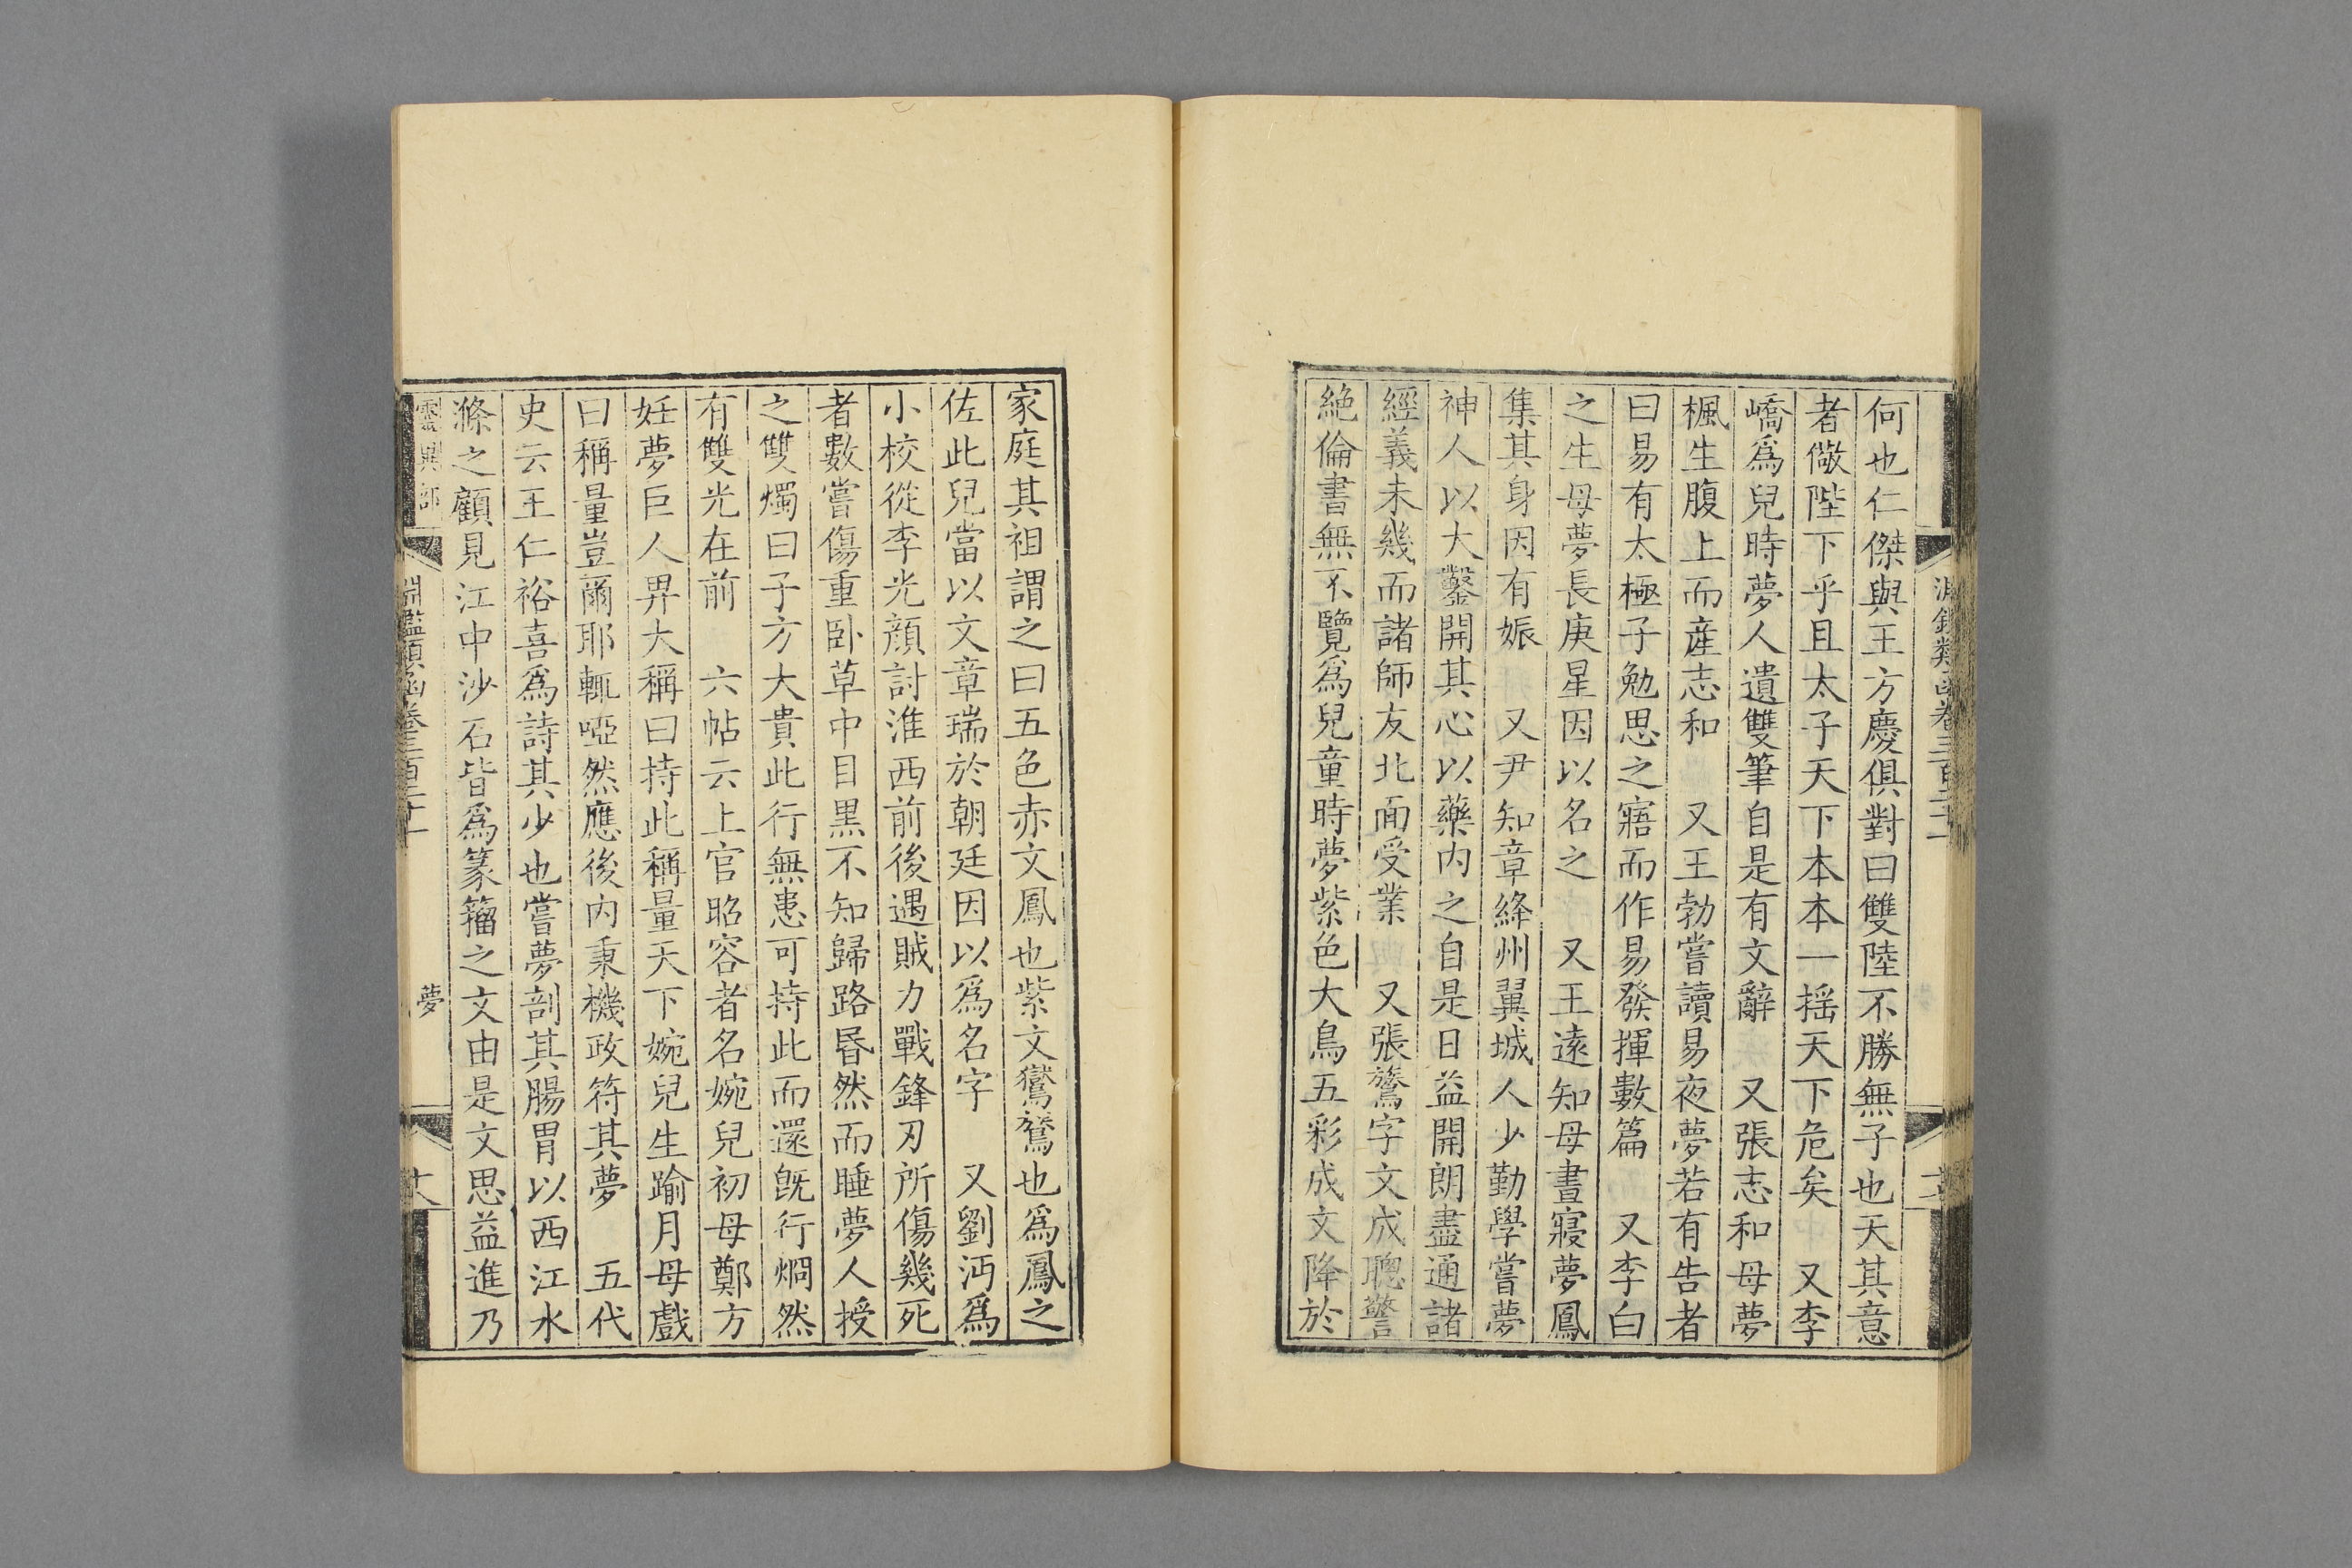 何也仁傑與王方慶俱對曰雙陸不勝無子也天其意
者儆陛下乎且太子天下本本一揺天下危矣 又李
嶠爲兒時夢人遺雙筆自是有文辭 又張志和母夢
楓生腹上而產志和 又王勃嘗讀易夜夢若有告者
曰易有太極子勉思之寤而作易發揮數篇 又李白
之生母夢長庚星因以名之 又王遠知母晝寢夢鳳
集其身因有娠 又尹知章絳州翼城人少勤學嘗夢
神人以大鑿開其心以藥内之自是日益開朗盡通諸
經義未幾而諸師友北面受業 又張鷟字文成聰警
絶倫書無不覽爲兒童時夢紫色大鳥五彩成文降於
家庭其祖謂之曰五色赤文鳳也紫文鸑鷟也爲鳳之
佐此兒當以文章瑞於朝廷因以爲名字 又劉沔爲
小校從李光顔討淮西前後遇賊力戰鋒刃所傷幾死
者數嘗傷重卧草中目黒不知歸路昬然而睡夢人授
之雙燭曰子方大貴此行無患可持此而還旣行烱然
有雙光在前 六帖云上官昭容者名婉兒初母鄭方
妊夢巨人畀大稱曰持此稱量天下婉兒生踰月母戲
曰稱量豈爾耶輒啞然應後内秉機政符其夢 五代
史云王仁裕喜爲詩其少也嘗夢剖其腸胃以西江水
滌之顧見江中沙石皆爲篆籀之文由是文思益進乃
淵鑑類函卷三百二十一 夢